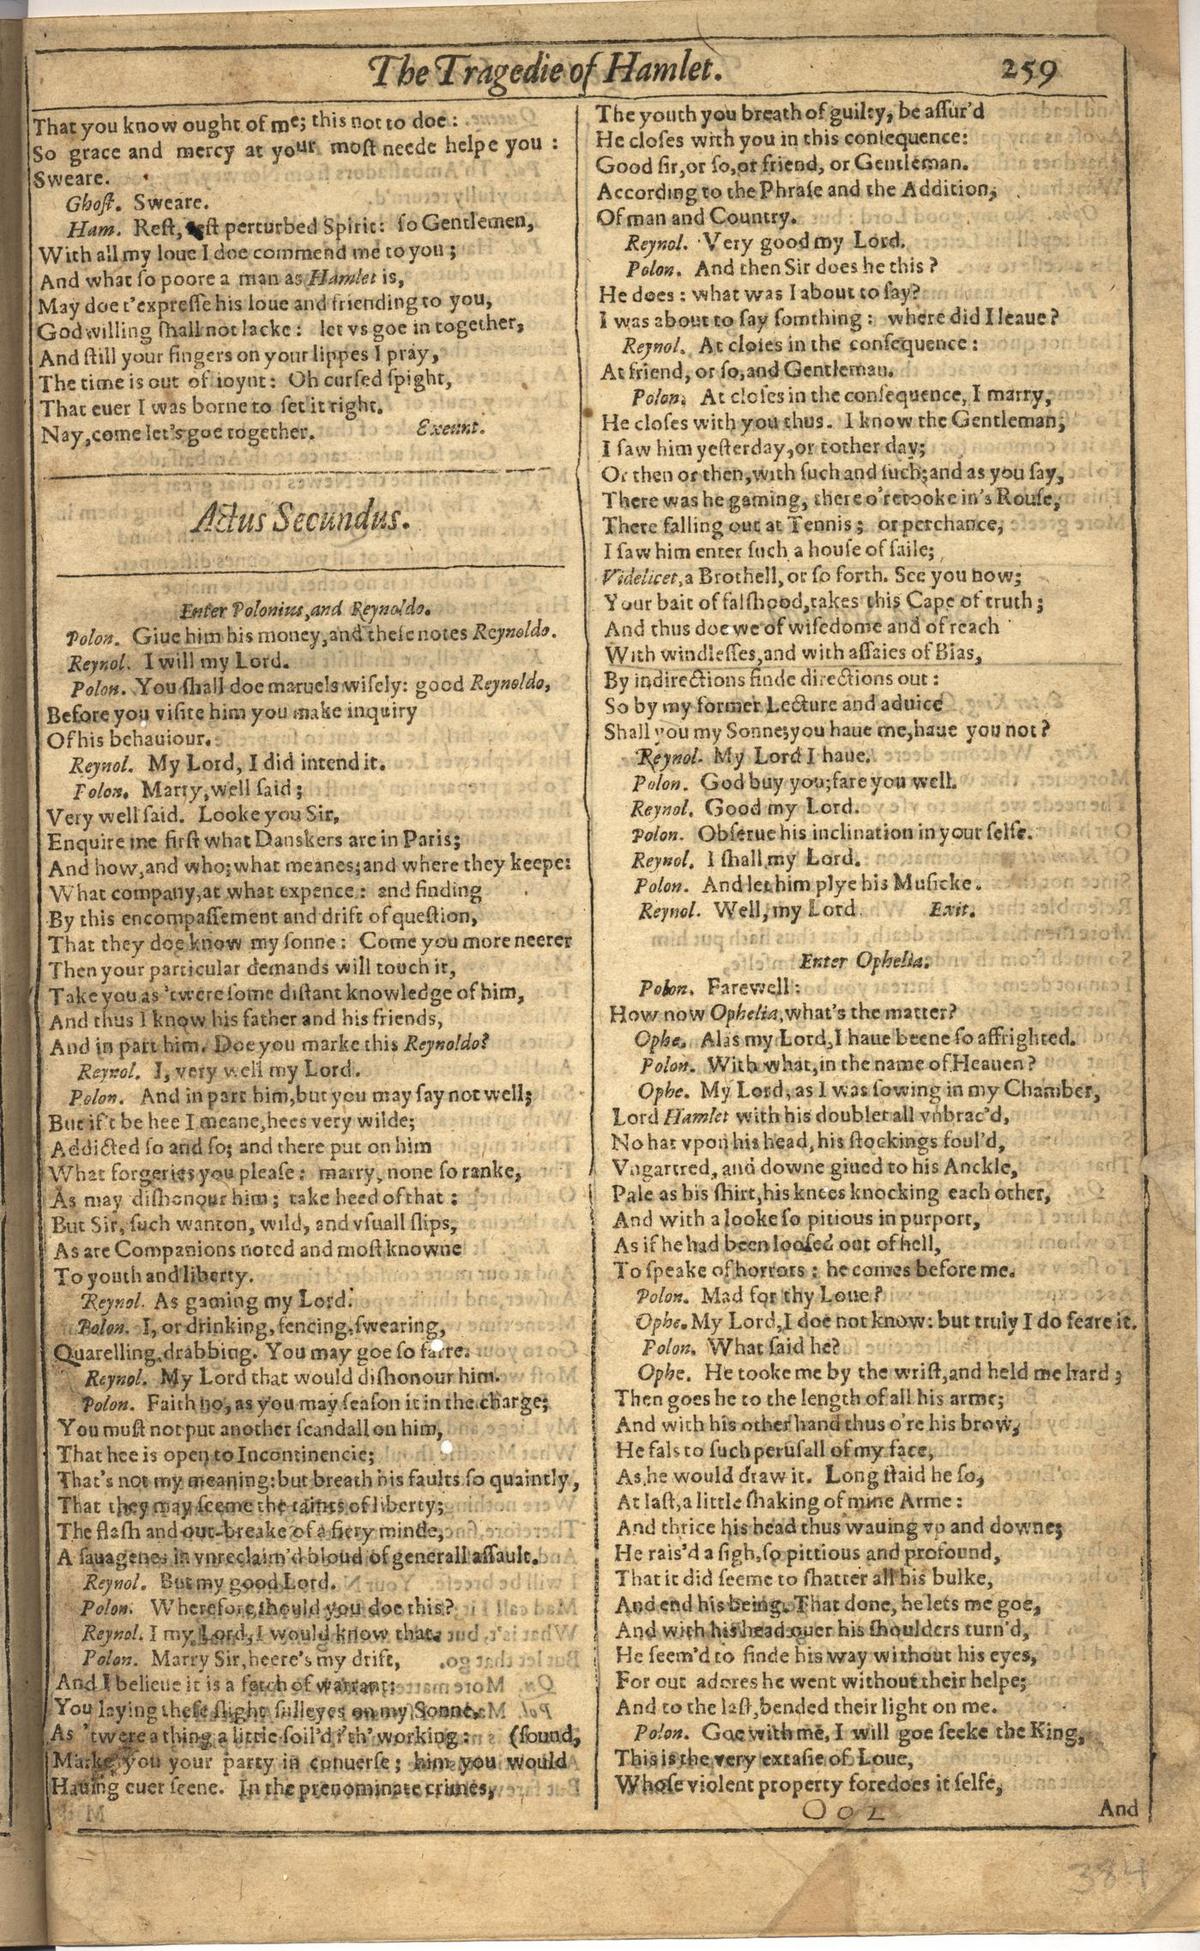 The Tragedie of Hamlet. 259
That you know ought of me; this not to doe:
So grace and mercy at your most neede helpe you:
Sweare.
Ghost. Sweare.
Ham. Rest, rest perturbed Spirit: so Gentlemen,
With all my loue I doe commend me to you;
And what so poore a man as Hamlet is,
May doe t'expresse his loue and friending to you,
God willing shall not lacke: let vs goe in together,
And still your fingers on your lippes I pray,
The time is out of ioynt: Oh cursed spight,
That euer I was borne to set it right.
Nay, come let's goe together. Exeunt.
Actus Secundus.
Enter Polonius, and Reynoldo.
Polon. Giue him his money, and these notes Reynoldo.
Reynol. I will my Lord.
Polon. You shall doe maruels wisely: good Reynoldo,
Before you visite him you make inquiry
Of his behauiour.
Reynol. My Lord, I did intend it.
Polon. Marry, well said;
Very well said. Looke you Sir,
Enquire me first what Danskers are in Paris;
And how, and who; what meanes; and where they keepe:
What company, at what expence: and finding
By this encompassement and drift of question,
That they doe know my sonne: Come you more neerer
Then your particular demands will touch it,
Take you as 'twere some distant knowledge of him,
And thus I know his father and his friends,
And in part him. Doe you marke this Reynoldo?
Reynol. I, very well my Lord.
Polon. And in part him, but you may say not well;
But if't be hee I meane, hees very wilde;
Addicted so and so; and there put on him
What forgeries you please: marry, none so ranke,
As may dishonour him; take heed of that:
But Sir, such wanton, wild, and vsuall slips,
As are Companions noted and most knowne
To youth and liberty.
Reynol. As gaming my Lord.
Polon. I, or drinking, fencing, swearing,
Quarelling, drabbing. You may goe so farre.
Reynol. My Lord that would dishonour him.
Polon. Faith no, as you may season it in the charge;
You must not put another scandall on him,
That hee is open to Incontinencie;
That's not my meaning: but breath his faults so quaintly,
That they may seeme the taints of liberty;
The flash and out-breake of a fiery minde,
A sauagenes in vnreclaim'd bloud of generall assault.
Reynol. But my good Lord.
Polon. Wherefore should you doe this?
Reynol. I my Lord, I would know that.
Polon. Marry Sir, heere's my drift,
And I belieue it is a fetch of warrant:
You laying these slight sulleyes on my Sonne,
As 'twere a thing a little soil'd i'th' working: (sound,
Marke you your party in conuerse; him you would
Hauing euer seene. In the prenominate crimes,
The youth you breath of guilty, be assur'd
He closes with you in this consequence:
Good sir, or so, or friend, or Gentleman.
According to the Phrase and the Addition,
Of man and Country.
Reynol. Very good my Lord.
Polon. And then Sir does he this?
He does: what was I about to say?
I was about to say somthing: where did I leaue?
Reynol. At closes in the consequence:
At friend, or so, and Gentleman.
Polon. At closes in the consequence, I marry,
He closes with you thus. I know the Gentleman,
I saw him yesterday, or tother day;
Or then or then, with such and such; and as you say,
There was he gaming, there o'retooke in's Rouse,
There falling out at Tennis; or perchance,
I saw him enter such a house of saile;
Videlicet, a Brothell, or so forth. See you now;
Your bait of falshood, takes this Cape of truth;
And thus doe we of wisedome and of reach
With windlesses, and with assaies of Bias,
By indirections finde directions out:
So by my former Lecture and aduice
Shall you my Sonne; you haue me, haue you not?
Reynol. My Lord I haue.
Polon. God buy you; fare you well.
Reynol. Good my Lord.
Polon. Obserue his inclination in your selfe.
Reynol. I shall my Lord.
Polon. And let him plye his Musicke.
Reynol. Well, my Lord. Exit.
Enter Ophelia.
Polon. Farewell:
How now Ophelia, what's the matter?
Ophe. Alas my Lord, I haue beene so affrighted.
Polon. With what, in the name of Heauen?
Ophe. My Lord, as I was sowing in my Chamber,
Lord Hamlet with his doublet all vnbrac'd,
No hat vpon his head, his stockings foul'd,
Vngartred, and downe giued to his Anckle,
Pale as his shirt, his knees knocking each other,
And with a looke so pitious in purport,
As if he had been loosed out of hell,
To speake of horrors: he comes before me.
Polon. Mad for thy Loue?
Ophe. My Lord, I doe not know: but truly I do feare it.
Polon. What said he?
Ophe. He tooke me by the wrist, and held me hard;
Then goes he to the length of all his arme;
And with his other hand thus o're his brow,
He fals to such perusall of my face,
As he would draw it. Long staid he so,
At last, a little shaking of mine Arme:
And thrice his head thus wauing vp and downe;
He rais'd a sigh, so pittious and profound,
That it did seeme to shatter all his bulke,
And end his being. That done, he lets me goe,
And with his head ouer his shoulders turn'd,
He seem'd to finde his way without his eyes,
For out adores he went without their helpe;
And to the last, bended their light on me.
Polon. Goe with me, I will goe seeke the King,
This is the very extasie of Loue,
Whose violent property foredoes it selfe,
Oo2 And
384